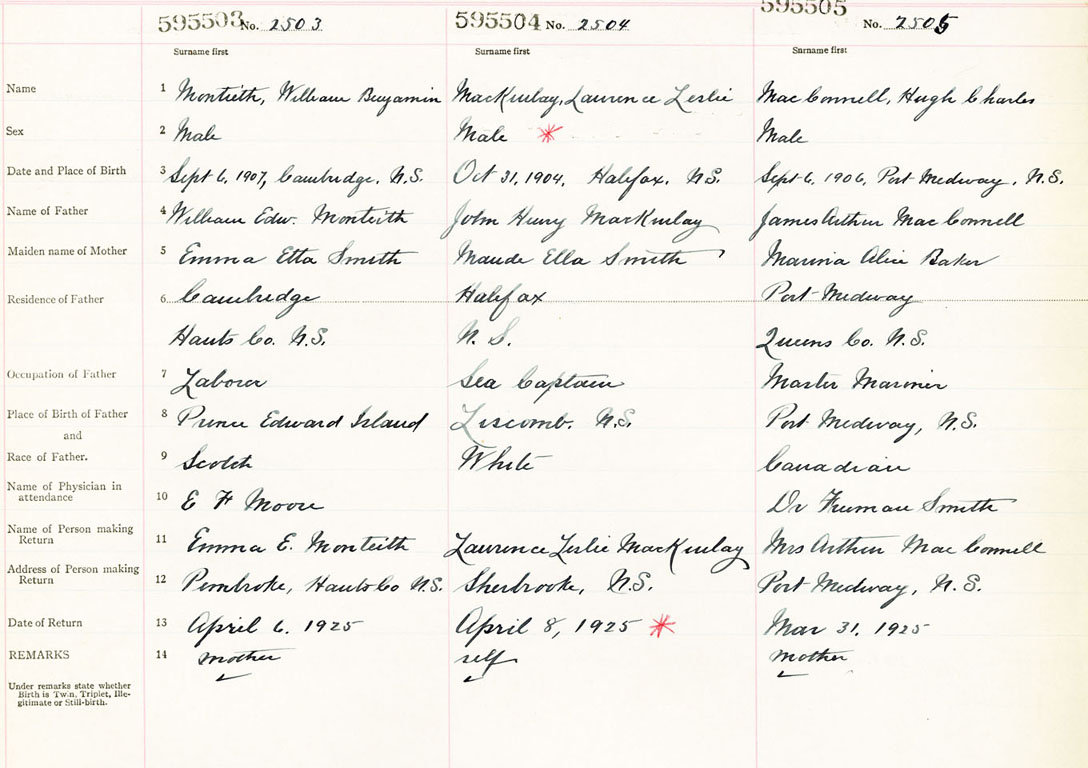 595503 No. 2503 595504 No. 2504 595505 No. 2505
Surname first Surname first Surname first
Name 1 Montieth, William Benjamin MacKinlay, Laurence Leslie MacConnell, Hugh Charles
Sex 2 Male Male Male
Date and Place of Birth 3 Sept 6, 1907, Cambridge, N.S. Oct 31, 1904, Halifax, N.S. Sept 6, 1906, Port Medway, N.S.
Name of Father 4 William Edw. Monteith John Henry MacKinlay James Arthur MacConnell
Maiden name of Mother 5 Emma Etta Smith Maude Ella Smith Marina Alice Baker
Residence of Father 6 Cambridge Halifax Port Medway
Hants Co. N.S. N. S. Queens Co. N.S.
Occupation of Father 7 Laborer Sea Captain Master Mariner
Place of Birth of Father 8 Prince Edward Island Liscomb. N.S. Port Medway, N.S.
and
Race of Father. 9 Scotch White Canadian
Name of Physician in
attendance 10 E F Moore Dr Freeman Smith
Name of Person making
Return 11 Emma E. Monteith Laurence Leslie MacKinlay Mrs Arthur MacConnell
Address of Person making
Return 12 Pembroke, Hants Co N.S. Sherbrooke, N.S. Port Medway, N.S.
Date of Return 13 April 6, 1925 April 8, 1925 Mar 31, 1925
REMARKS 14 mother self mother
Under remarks state whether
Birth is Twin, Triplet, Ille-
gitimate or Still-birth.